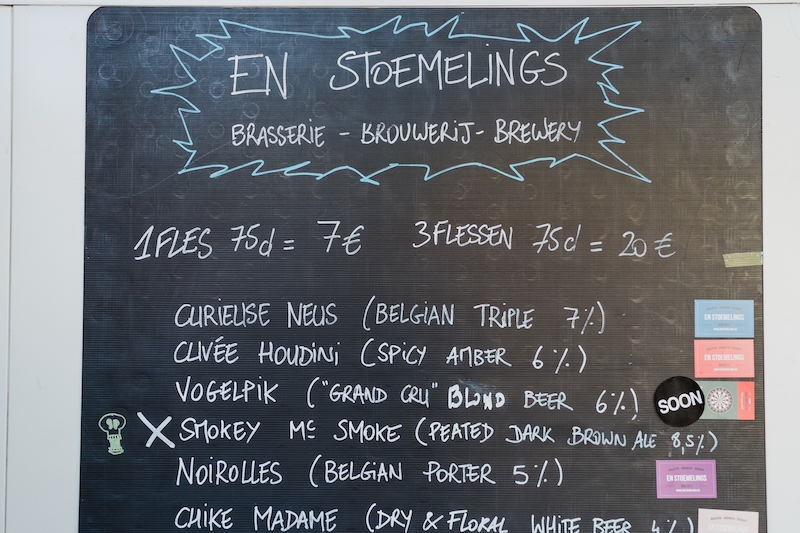 EN STOEMELINGS
BRASSERIE - BROUWERIJ - BREWERY
1 FLES 75cl = 7€ 3 FLESSEN 75cl = 20€
CURIEUSE NEUS (BELGIAN TRIPLE 7%)
EN STOEMELINGS
CUVÉE HOUDINI (SPICY AMBER 6%)
EN STOEMELINGS
VOGELPIK ("GRAND CRU" BLOND BEER 6%)
SOON
X SMOKEY Mc SMOKE (PEATED DARK BROWN ALE 8,5%)
NOIROLLES (BELGIAN PORTER 5%)
EN STOEMELINGS
CHIKE MADAME (DRY & FLORAL WHITE BEER 4%)